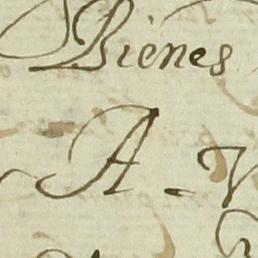 Bienes
A - V